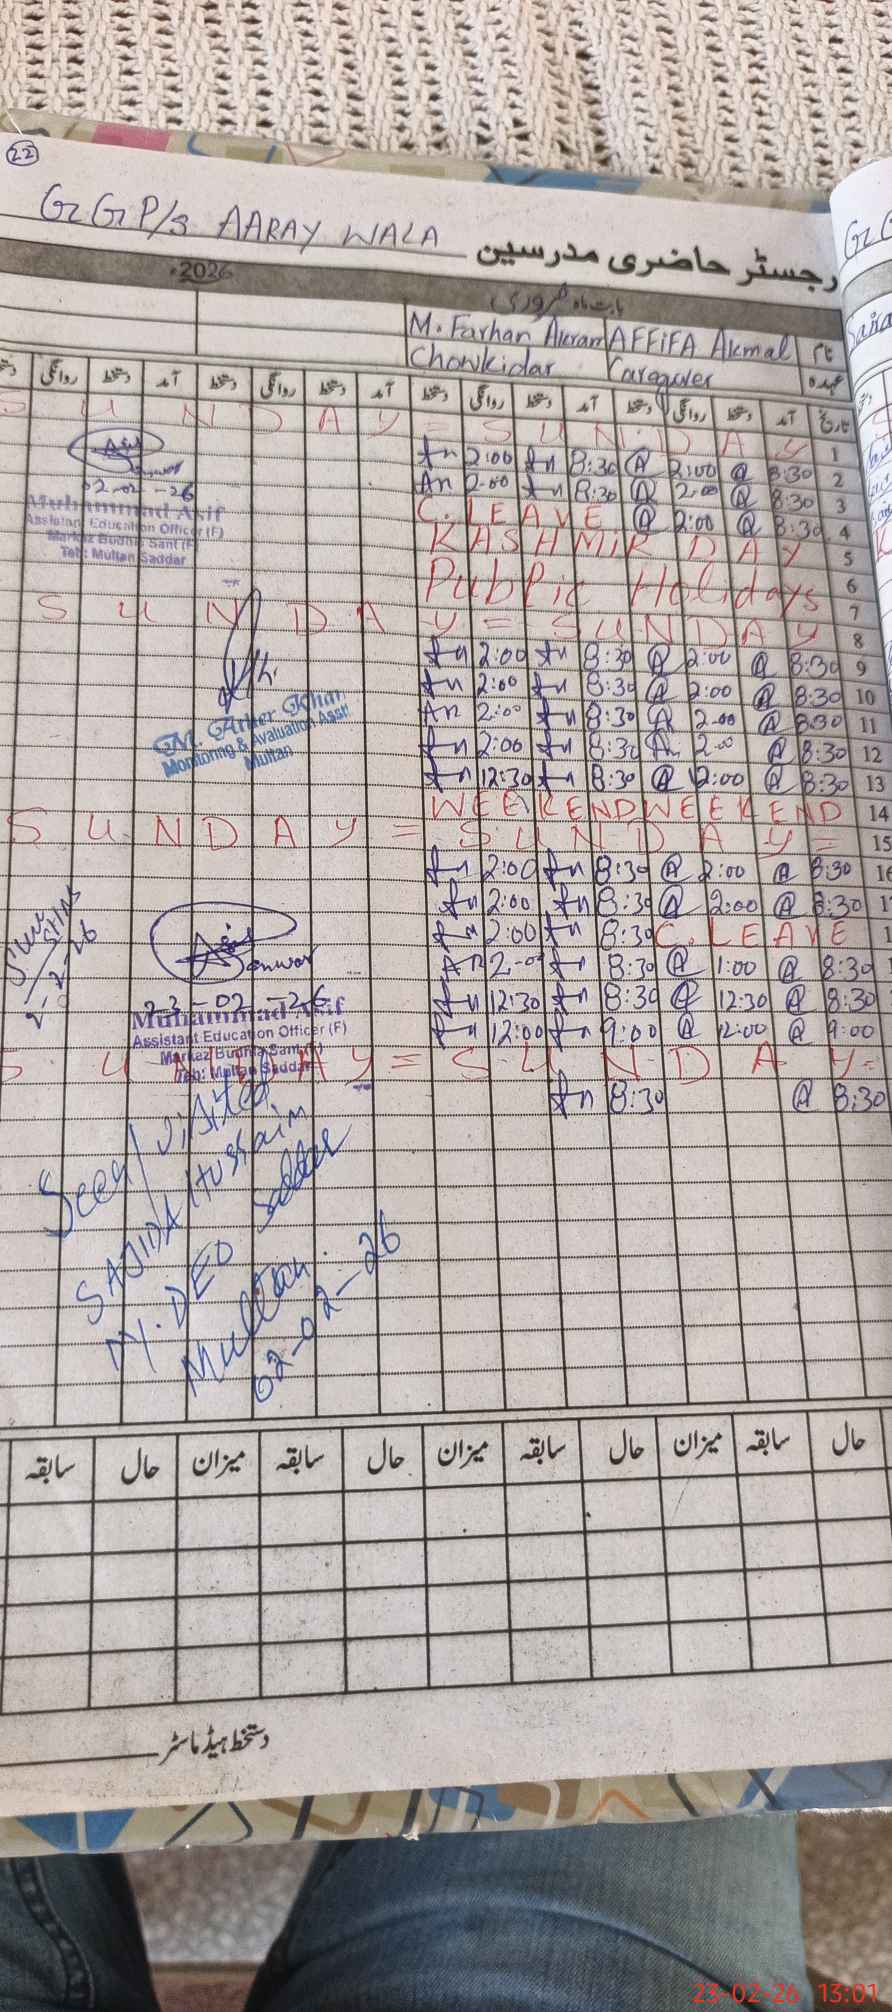 22
GGP/S AARAY WALA رجسٹر حاضری مدرسین
بابت ماہ فروری 2026ء
نام AFFiFA Akmal M. Farhan Akram
عہدہ Caregiver Chowkidar
تاریخ آمد دستخط روانگی دستخط آمد دستخط روانگی دستخط آمد دستخط روانگی دستخط آمد دستخط روانگی
1 SUNDAY = SUNDAY
2 8:30 @ 2:00 @ 8:30 2:00
3 8:30 @ 2:00 @ 8:30 2:00
4 8:30 @ 2:00 @ C. LEAVE
5 KASHMIR DAY
6 Public Holidays
7
8 SUNDAY = SUNDAY
9 8:30 @ 2:00 @ 8:30 2:00
10 8:30 @ 2:00 @ 8:30 2:00
11 8:30 @ 2:00 @ 8:30 2:00
12 8:30 @ 2:00 @ 8:30 2:00
13 8:30 @ 12:00 @ 8:30 12:30
14 WEEKEND WEEKEND
15 SUNDAY = SUNDAY =
16 8:30 @ 2:00 @ 8:30 2:00
8:30 @ 2:00 @ 8:30 2:00
C. LEAVE 8:30 2:00
8:30 @ 1:00 @ 8:30 2:00
8:30 @ 12:30 @ 8:30 12:30
9:00 @ 12:00 @ 9:00 12:00
SUNDAY = SUNDAY =
8:30 @ 8:30
02-02-26
Muhammad Asif
Assistant Education Officer (F)
Markaz Budhla Sant (F)
Teh: Multan Saddar
M. Ather Khan
Monitoring & Evaluation Asstt
Multan
23-02-26
Muhammad Asif
Assistant Education Officer (F)
Markaz Budhla Sant (F)
Teh: Multan Saddar
Seen/visited
SAJIDA Hussain
Saddar
Multan.
02-02-26
حال سابقہ میزان حال سابقہ میزان حال سابقہ میزان حال سابقہ
دستخط ہیڈ ماسٹر
23-02-26 13:01